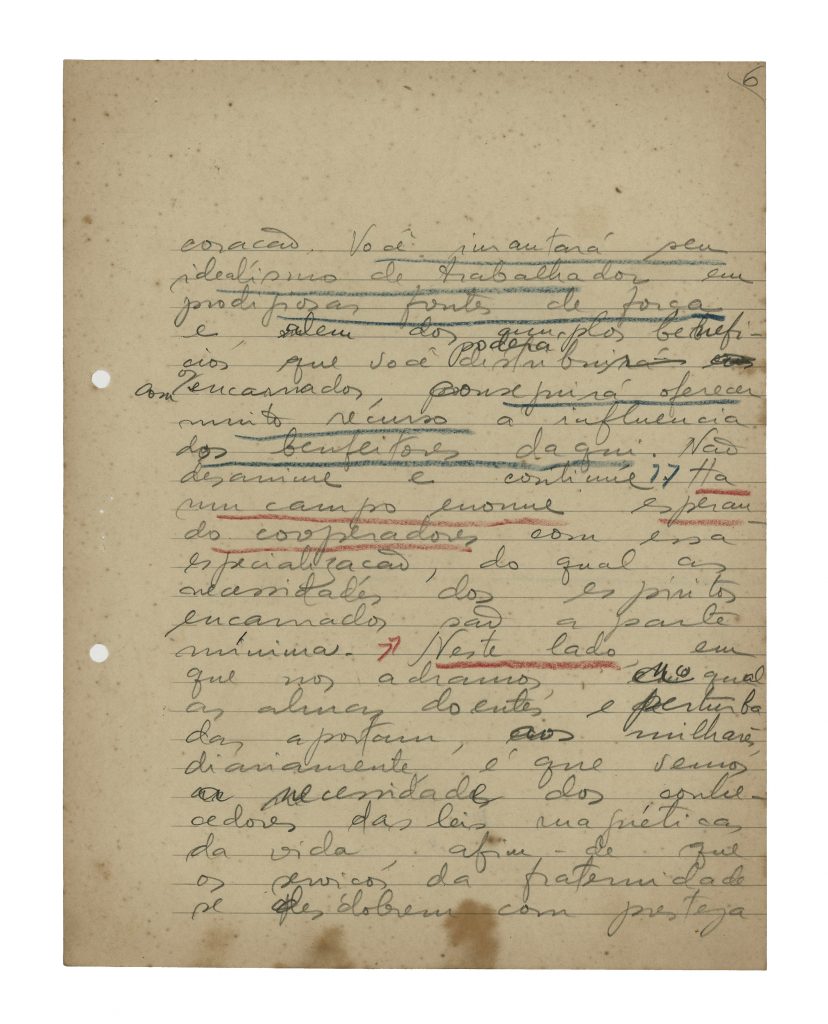 6
coracão. Você imantará seu
idealismo de trabalhador em
prodigiosas fontes de força
e, alem dos benefi-
poderá
cios que você distribuirá aos
com os encarnados, conseguirá oferecer
muito recurso a influencia
dos benfeitores daqui. Não
desanime e continúe. Ha
um campo enorme esperan-
do cooperadores com essa
especialização, do qual as
necessidades dos espiritos
encarnados são a parte
minima. Neste lado, em
que nos achamos, no qual
as almas doentes e perturba
das aportam, aos milhares,
diariamente, é que vemos
a necessidade dos conhe-
cedores das leis magnéticas
da vida, afim-de que
os serviços da fraternidade
se desdobrem com presteza